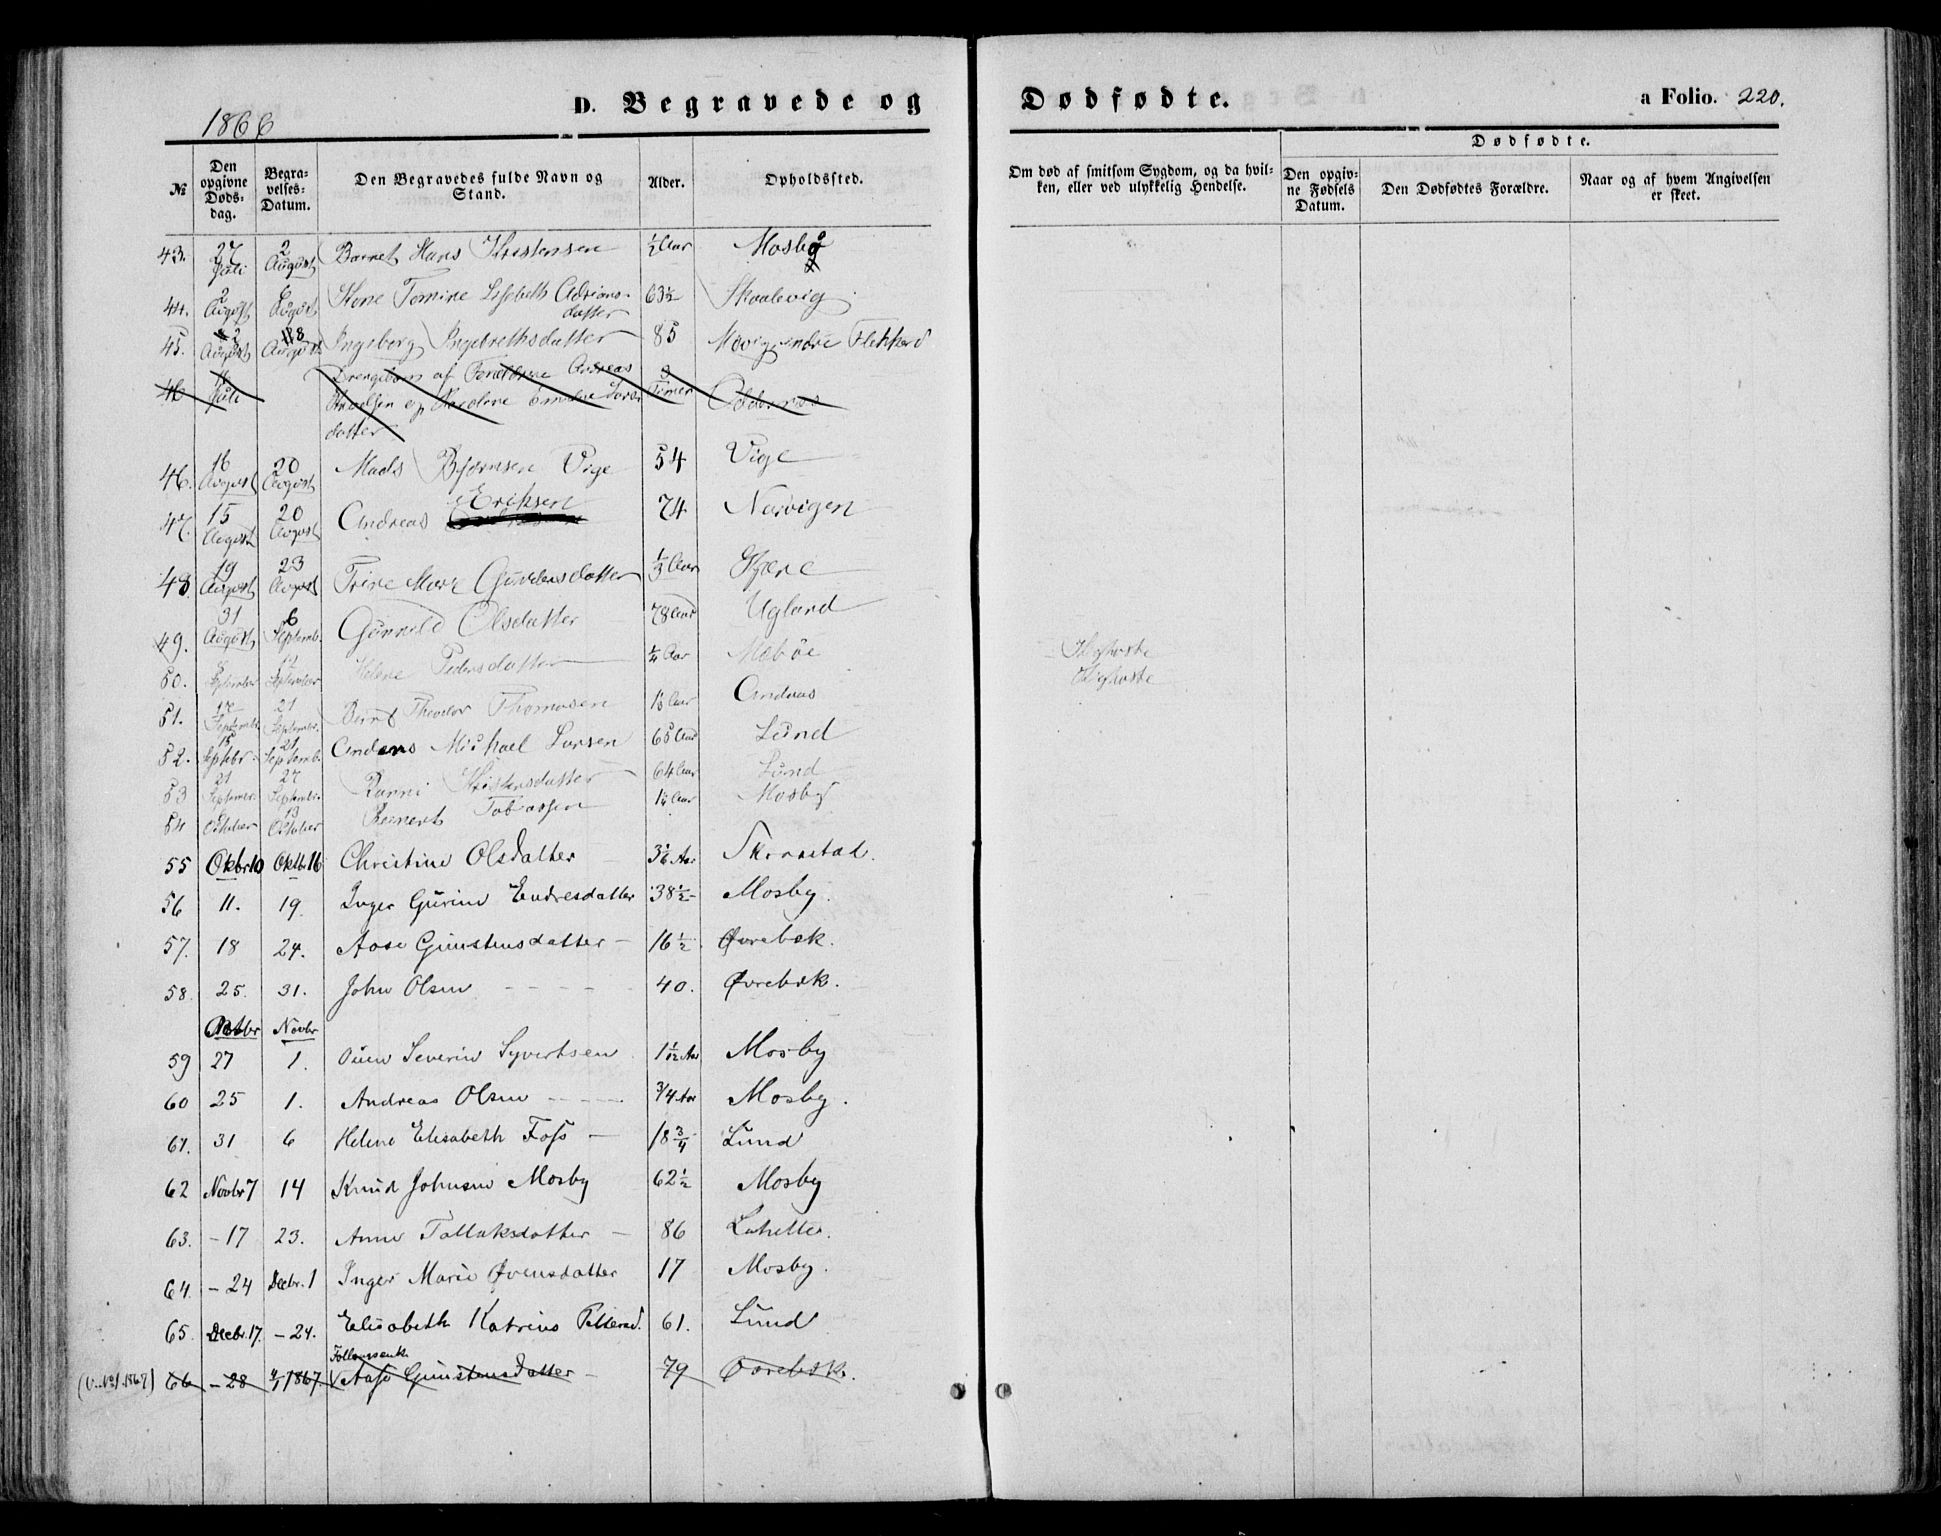 1866
D. Begravede og Dødfødte. a Folio. 220.
№ Den opgivne Døds-dag. Begra-velses-Datum. Den Begravedes fulde Navn og Stand. Alder. Opholdssted. Om død af smitsom Sygdom, og da hvil-ken, eller ved ulykkelig Hendelse. Dødfødte. Den opgiv-ne Fødsels Datum. Den Dødfødtes Forældre. Naar og af hvem Angivelsen er skeet.
43. 27 Juli 2 August Barnet Hans Kristensen ½ Aar Mosby
44. 2 August 6 August Kone Tomine Lisebeth Adrians-datter 63½ Skaalevig
45. 2 August 8 August Ingeborg Ingebrethsdatter 85 Møvig indre Flekkerø
46 Juli Drengebarn af Forældrene Andreas
og Karoline
datter Timer Odernes
46. 16 August 20 August Mads Bjørnsen Vige 54 Vige
47. 15 August 20 August Andreas Eriksen 74 Narvigen
48. 19 August 23 August Trine Marie Gundersdatter ⅓ Aar Kjære
49. 31 August 6 Septemb. Gunnild Olsdatter 78 Aar Ugland
50. September September Helene Pedersdatter ¼ Aar Mæbøe Kighoste
51. Septembr. 21 September Bernt Theodor Thomasen Aar Andaas Kighoste
52. 15 Septebr. 21 Septemb. Anders Michael Larsen 65 Aar Lund
53 21 Septembr. 27 Septembr. Ranni Kristensdatter 64 Aar Lund
54 October 13 October Reinert Tobiassen Aar Mosby
55 Okbr 10 Oktbr 16 Christine Olsdatter 3⅙ Aar Skraastad.
56 11. 19. Inger Gurine Endresdatter 38½ Mosby.
57. 18 24. Aase Gunstensdatter 16½ Øvrebøk.
58. 25. 31. John Olsen 40. Øvrebøk.
Oktbr Novbr
59 27 1. Ouen Severin Syvertsen 1 1/12 Aar Mosby
60 25 1. Andreas Olsen 3/4 Aar Mosby.
61. 31 6 Helene Elisabeth Foss 18¾ Lund
62 Novbr 7 14 Knud Johnsen Mosby 62½ Mosby
63. - 17 23. Anne Tallaksdatter 86 Lahelle.
64. - 24 Decbr. 1 Inger Marie Øvensdatter 17 Mosby.
65. Decbr. 17. - 24. Elisabeth Katrine Pettersd. 61. Lund
(V. № 1. 1867) 66 - 28 4/1 1867. Follaugsenk. Aase Gunstensdatter 79 Øvrebøk.